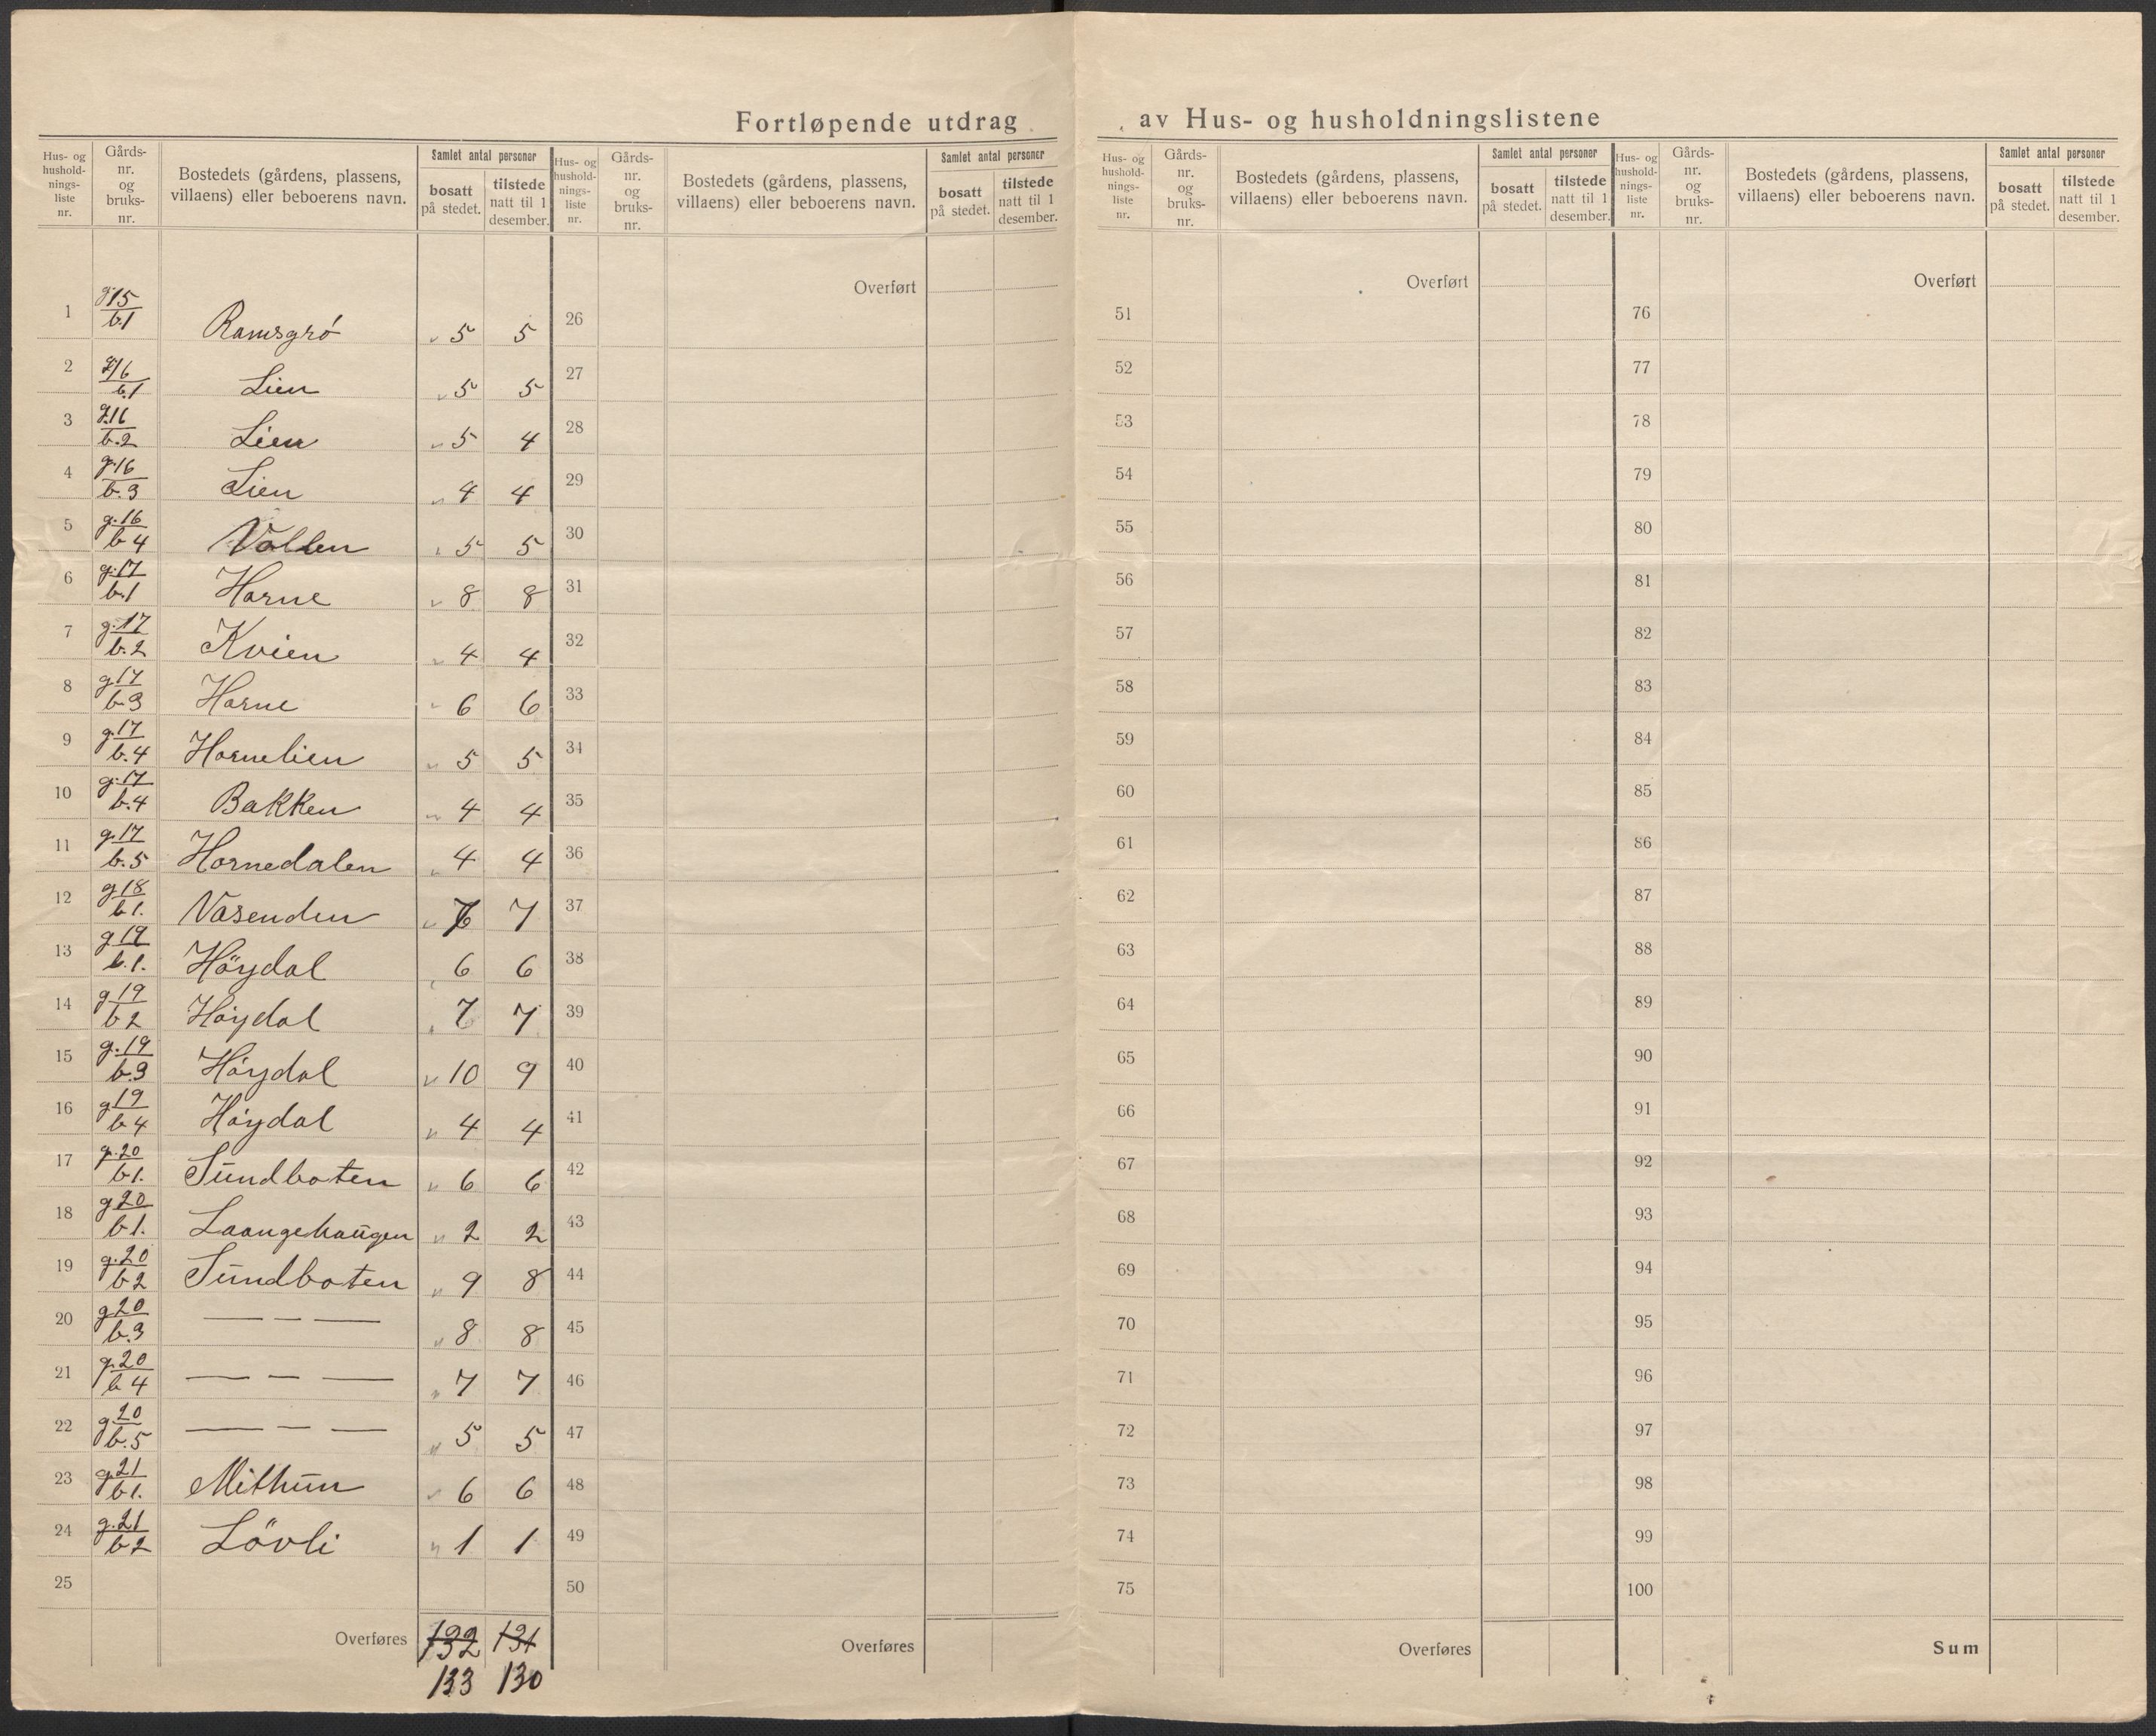 Fortløpende utdrag av Hus- og husholdningslistene
Hus- og hushold- nings- liste nr. Gårds- nr. og bruks- nr. Bostedets (gårdens, plassens, villaens) eller beboerens navn. Samlet antal personer bosatt på stedet. tilstede natt til 1 desember.
Hus- og hushold- nings- liste nr. Gårds- nr. og bruks- nr. Bostedets (gårdens, plassens, villaens) eller beboerens navn. Samlet antal personer bosatt på stedet. tilstede natt til 1 desember.
Hus- og hushold- nings- liste nr. Gårds- nr. og bruks- nr. Bostedets (gårdens, plassens, villaens) eller beboerens navn. Samlet antal personer bosatt på stedet. tilstede natt til 1 desember.
Hus- og hushold- nings- liste nr. Gårds- nr. og bruks- nr. Bostedets (gårdens, plassens, villaens) eller beboerens navn. Samlet antal personer bosatt på stedet. tilstede natt til 1 desember.
Overført Overført Overført
1 g.15/b.1 Ramsgrö 5 5 26 51 76
2 g.16/b.1 Lien 5 5 27 52 77
3 g.16/b.2 Lien 5 4 28 53 78
4 g.16/b.3 Lien 4 4 29 54 79
5 g.16/b 4 Vollen 5 5 30 55 80
6 g.17/b.1 Horne 8 8 31 56 81
7 g.17/b.2 Kvien 4 4 32 57 82
8 g 17/b.3 Horne 6 6 33 58 83
9 g.17/b.4 Hornelien 5 5 34 59 84
10 g.17/b.4 Bakken 4 4 35 60 85
11 g.17/b.5 Hornedalen 4 4 36 61 86
12 g 18/b 1. Vasenden 7 7 37 62 87
13 g 19/b.1. Höydal 6 6 38 63 88
14 g 19/b 2 Höydal 7 7 39 64 89
15 g.19/b.3 Höydal 10 9 40 65 90
16 g 19/b 4 Höydal 4 4 41 66 91
17 g.20/b 1. Sundboten 6 6 42 67 92
18 g 20/b 1. Laangehaugen 2 2 43 68 93
19 g.20/b 2 Sundboten 9 8 44 69 94
20 g 20/b.3 — - — 8 8 45 70 95
21 g.20/b 4 — - — 7 7 46 71 96
22 g 20/b.5 — - — 5 5 47 72 97
23 g.21/b 1. Mithun 6 6 48 73 98
24 g.21/b 2 Lövli 1 1 49 74 99
25 50 75 100
Overføres 132 131 Overføres Overføres Sum
133 130